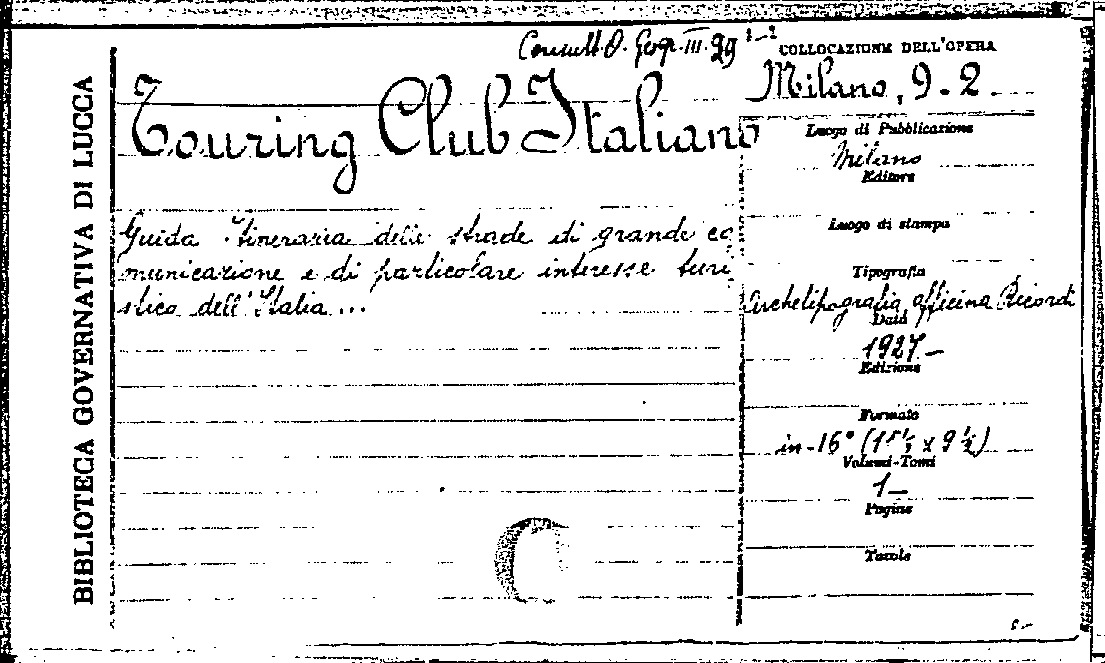 Consult. O. Geogr. III. 29 1-2
COLLOCAZIONE DELL'OPERA
Milano, 9-2
Touring Club Italiano
Luogo di Pubblicazione
Milano
Editore
Guida Itineraria delle strade di grande co
municazione e di particolare interesse turi
stico dell'Italia...
Luogo di stampa
Tipografia
Archetipografia officina Ricordi
Data
1927-
Edizione
Formato
in-16° (15½ x 9½)
Volumi-Tomi
1-
Pagine
Tavole
BIBLIOTECA GOVERNATIVA DI LUCCA
C